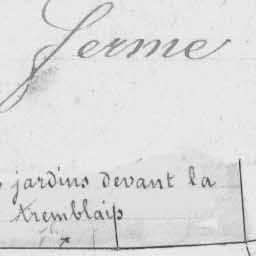 Ferme
jardins devant la
tremblais